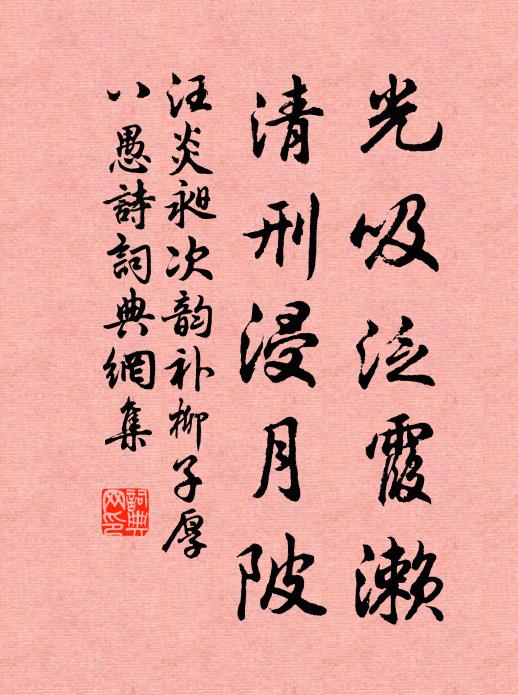 光吸泛霞濑
清刑浸月陂
汪炎昶次韵补柳子厚
八愚詩詞典網集
詞典
网印